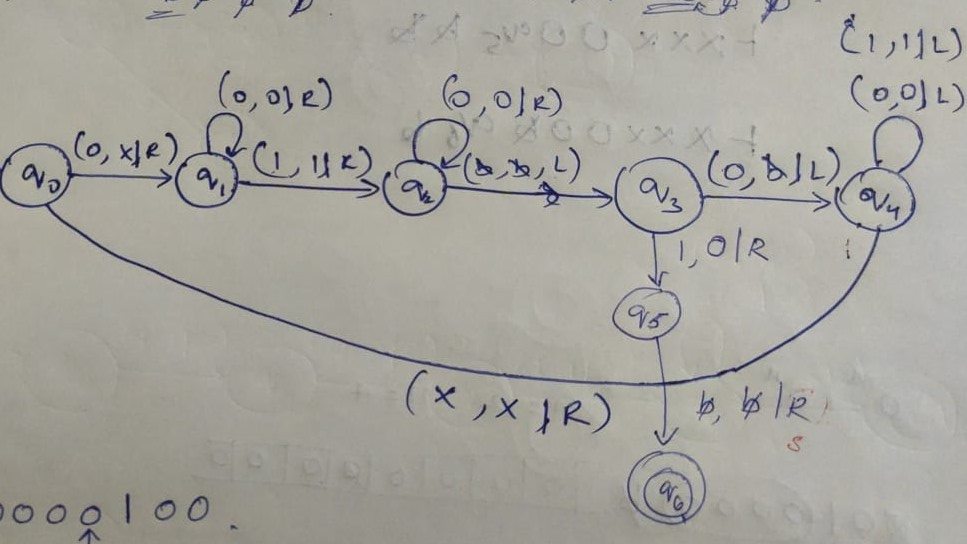 (1,1|L)
(0,0|R) (0,0|R) (0,0|L)
q0 (0,x|R) q1 (1,1|R) q2 (b,b,L) q3 (0,b|L) q4
1,0|R
q5
(x,x|R) b,b|R
s
q6
0000100.